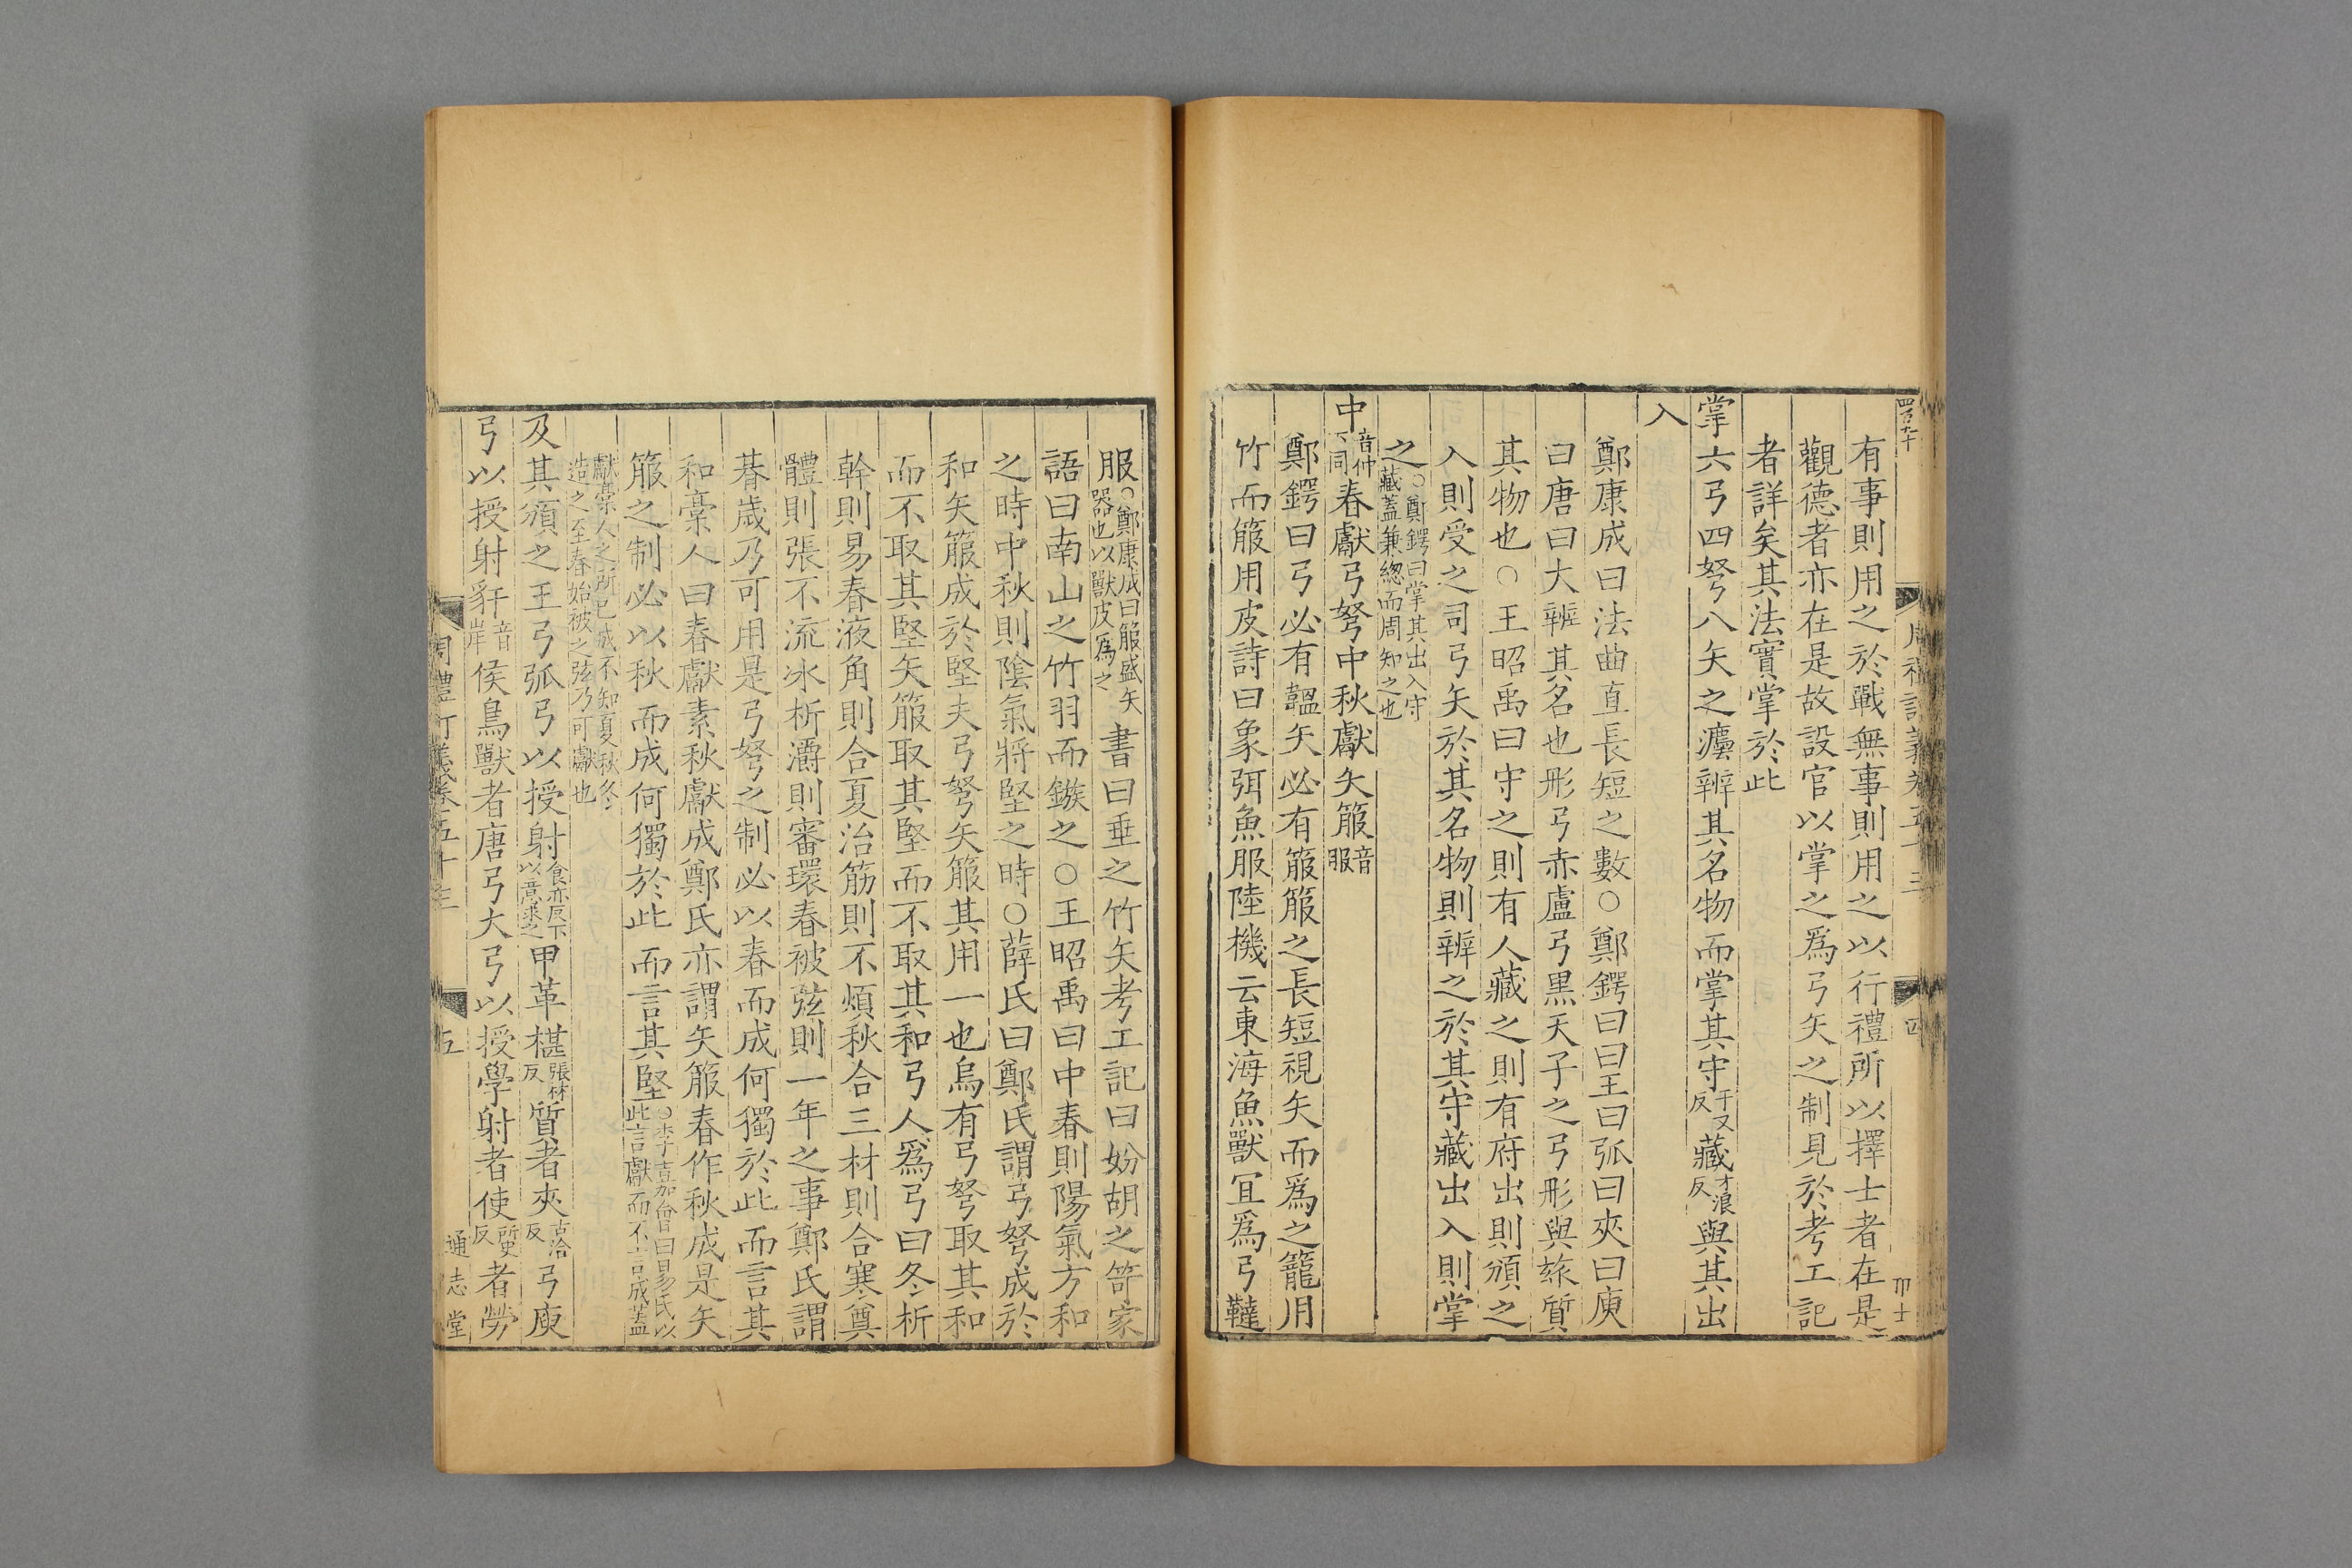 有事則用之於戰無事則用之以行禮所以擇士者在是
觀德者亦在是故設官以掌之爲弓矢之制見於考工記
者詳矣其法實掌於此
掌六弓四弩八矢之灋辨其名物而掌其守于又反藏才浪反與其出
入
鄭康成曰法曲直長短之數○鄭鍔曰曰王曰弧曰夾曰庾
曰唐曰大辨其名也彤弓赤盧弓黑天子之弓形與茲質
其物也○王昭禹曰守之則有人藏之則有府出則頒之
入則受之司弓矢於其名物則辨之於其守藏出入則掌
之○鄭鍔曰掌其出入守藏蓋兼總而周知之也
中音仲下同春獻弓弩中秋獻矢箙音服
鄭鍔曰弓必有韞矢必有箙箙之長短視矢而爲之籠用
竹而箙用皮詩曰象弭魚服陸機云東海魚獸宜爲弓鞬
服○鄭康成曰箙盛矢器也以獸皮爲之書曰垂之竹矢考工記曰妢胡之笴家
語曰南山之竹羽而鏃之○王昭禹曰中春則陽氣方和
之時中秋則陰氣將堅之時○薛氏曰鄭氏謂弓弩成於
和矢箙成於堅夫弓弩矢箙其用一也烏有弓弩取其和
而不取其堅矢箙取其堅而不取其和弓人爲弓曰冬析
幹則易春液角則合夏治筋則不煩秋合三材則合寒奠
體則張不流冰析灂則審環春被弦則一年之事鄭氏謂
朞歲乃可用是弓弩之制必以春而成何獨於此而言其
和槀人曰春獻素秋獻成鄭氏亦謂矢箙春作秋成是矢
箙之制必以秋而成何獨於此而言其堅○李嘉會曰易氏以此言獻而不言成蓋
獻槀人之所已成不知夏秋冬造之至春始被之弦乃可獻也
及其頒之王弓弧弓以授射食亦反下以意求之甲革椹張林反質者夾古洽反弓庾
弓以授射豻音岸侯鳥獸者唐弓大弓以授學射者使所吏反者勞
周禮訂義卷五十三
五
通志堂
四